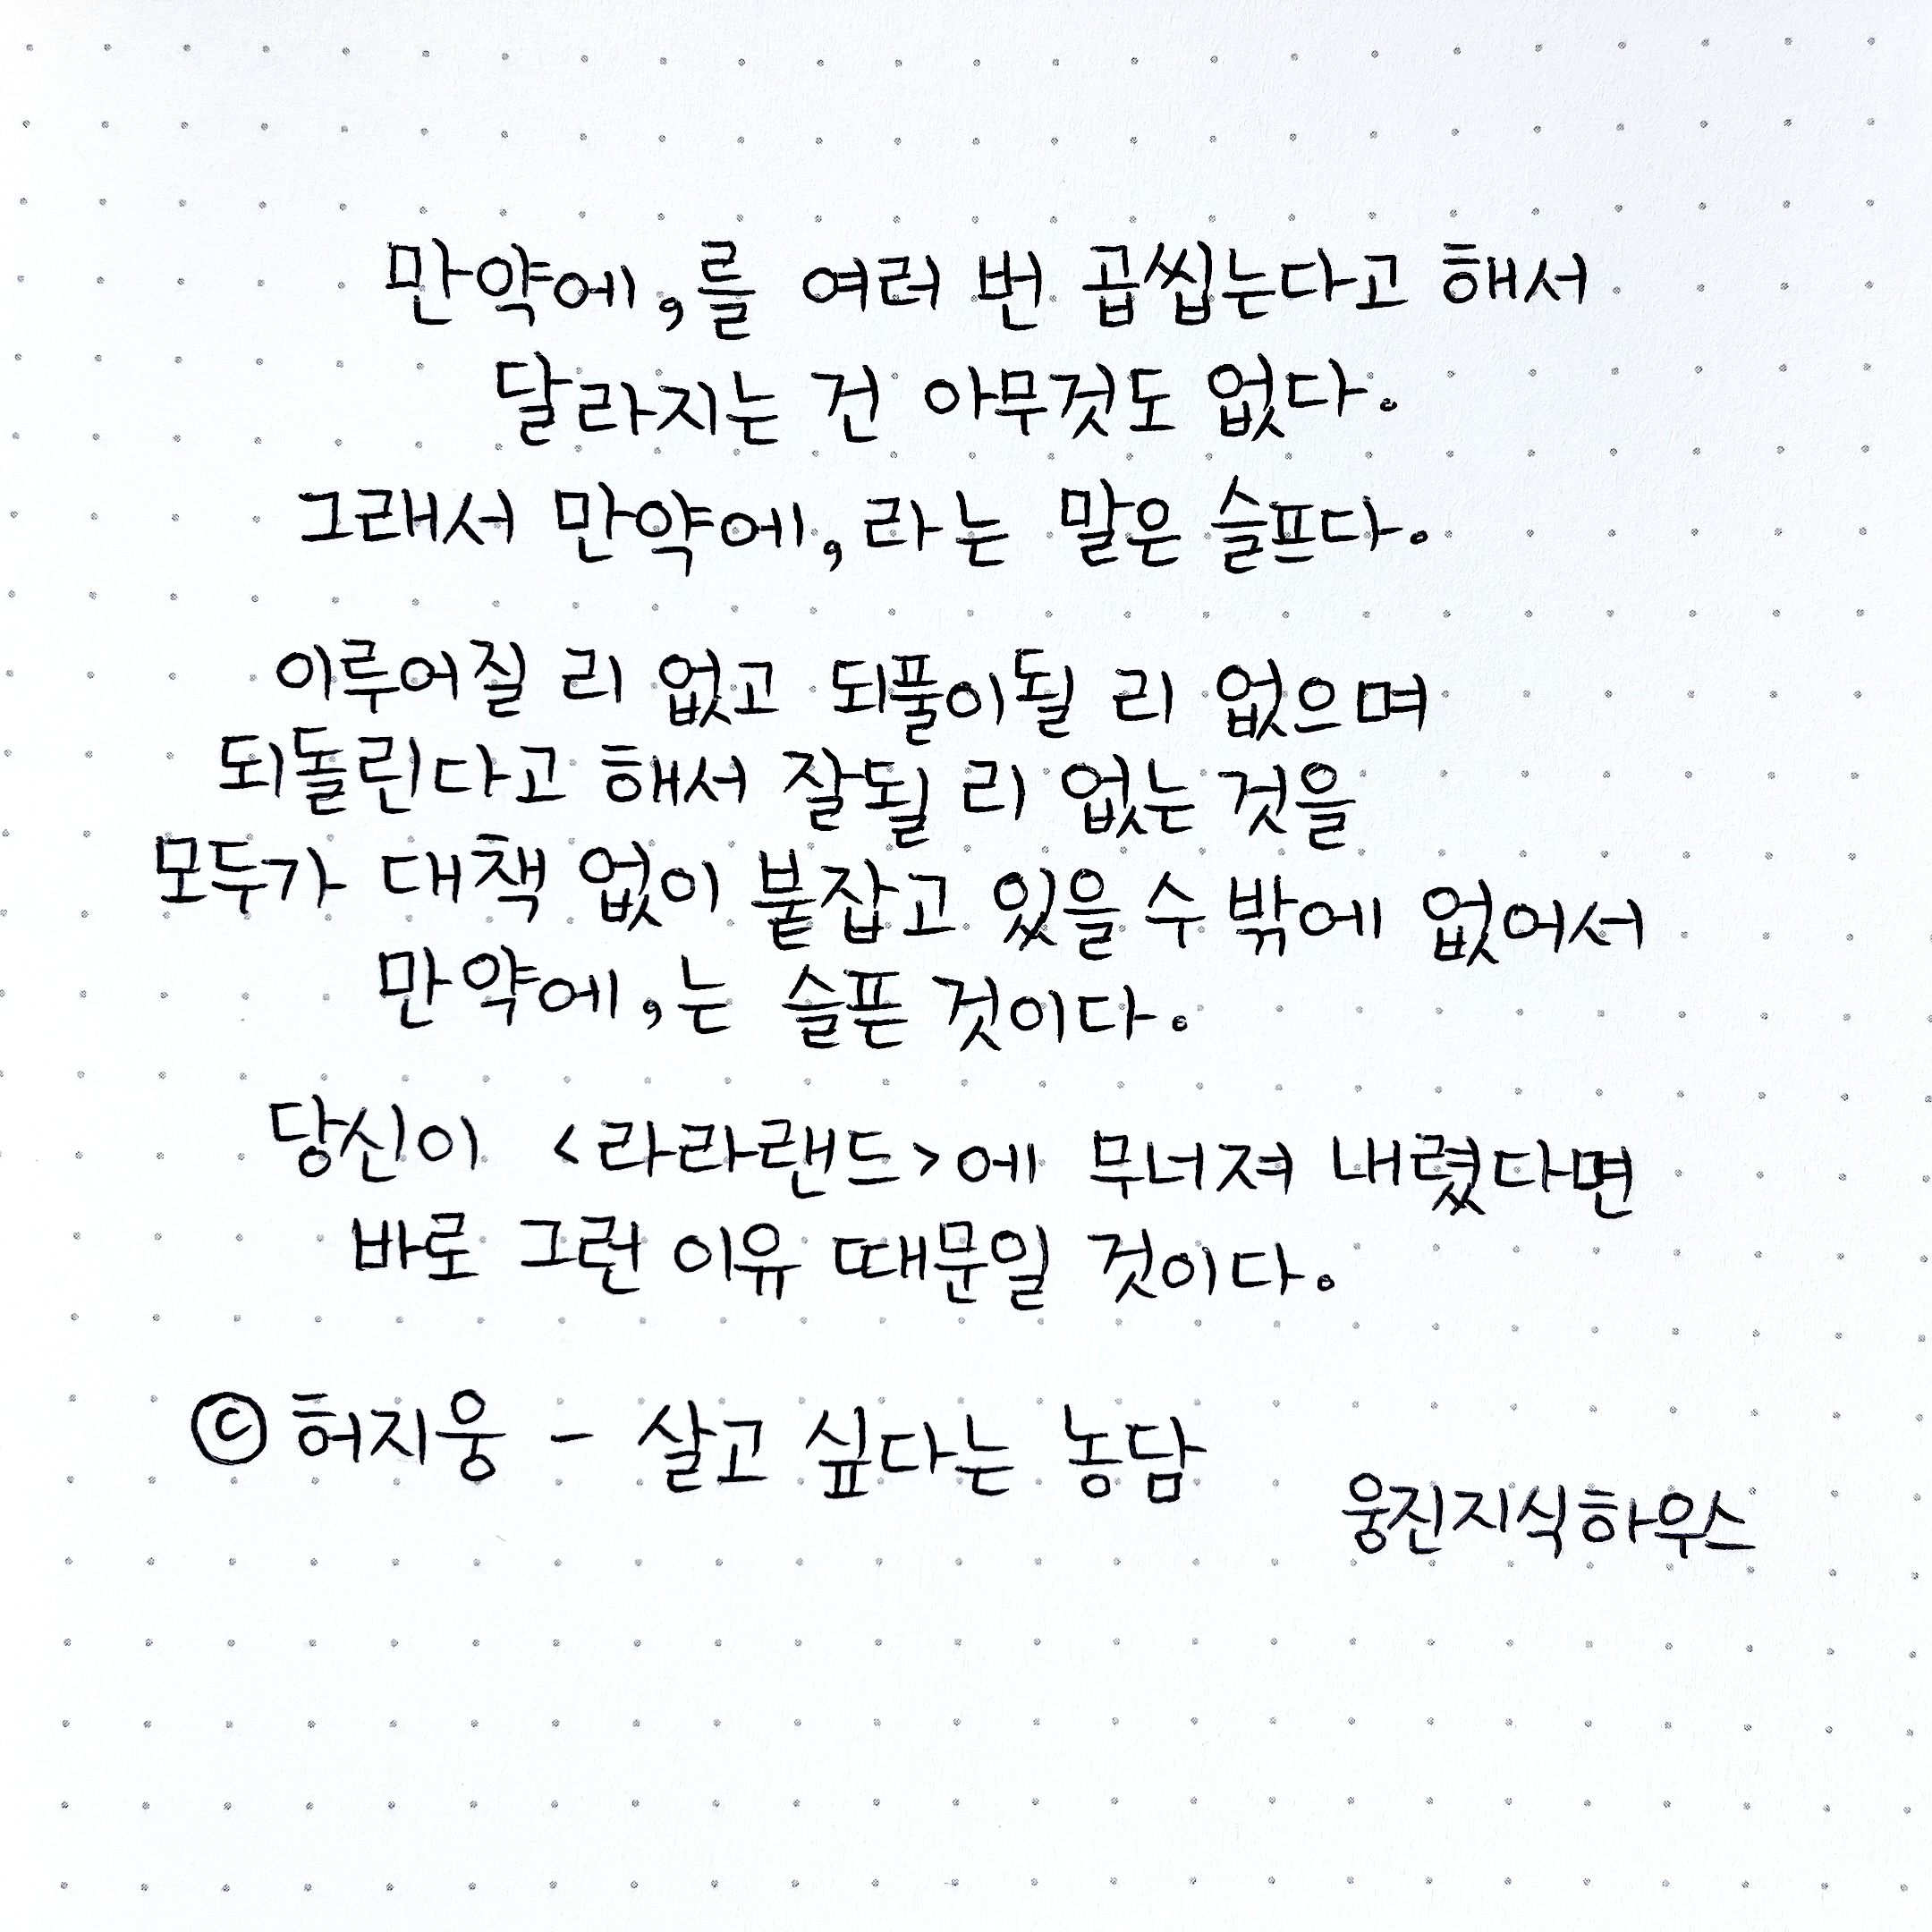 만약에,를 여러 번 곱씹는다고 해서
달라지는 건 아무것도 없다.
그래서 만약에,라는 말은 슬프다.
이루어질 리 없고 되풀이될 리 없으며
되돌린다고 해서 잘될 리 없는 것을
모두가 대책 없이 붙잡고 있을 수 밖에 없어서
만약에,는 슬픈 것이다.
당신이 <라라랜드>에 무너져 내렸다면
바로 그런 이유 때문일 것이다.
© 허지웅 - 살고 싶다는 농담
웅진지식하우스